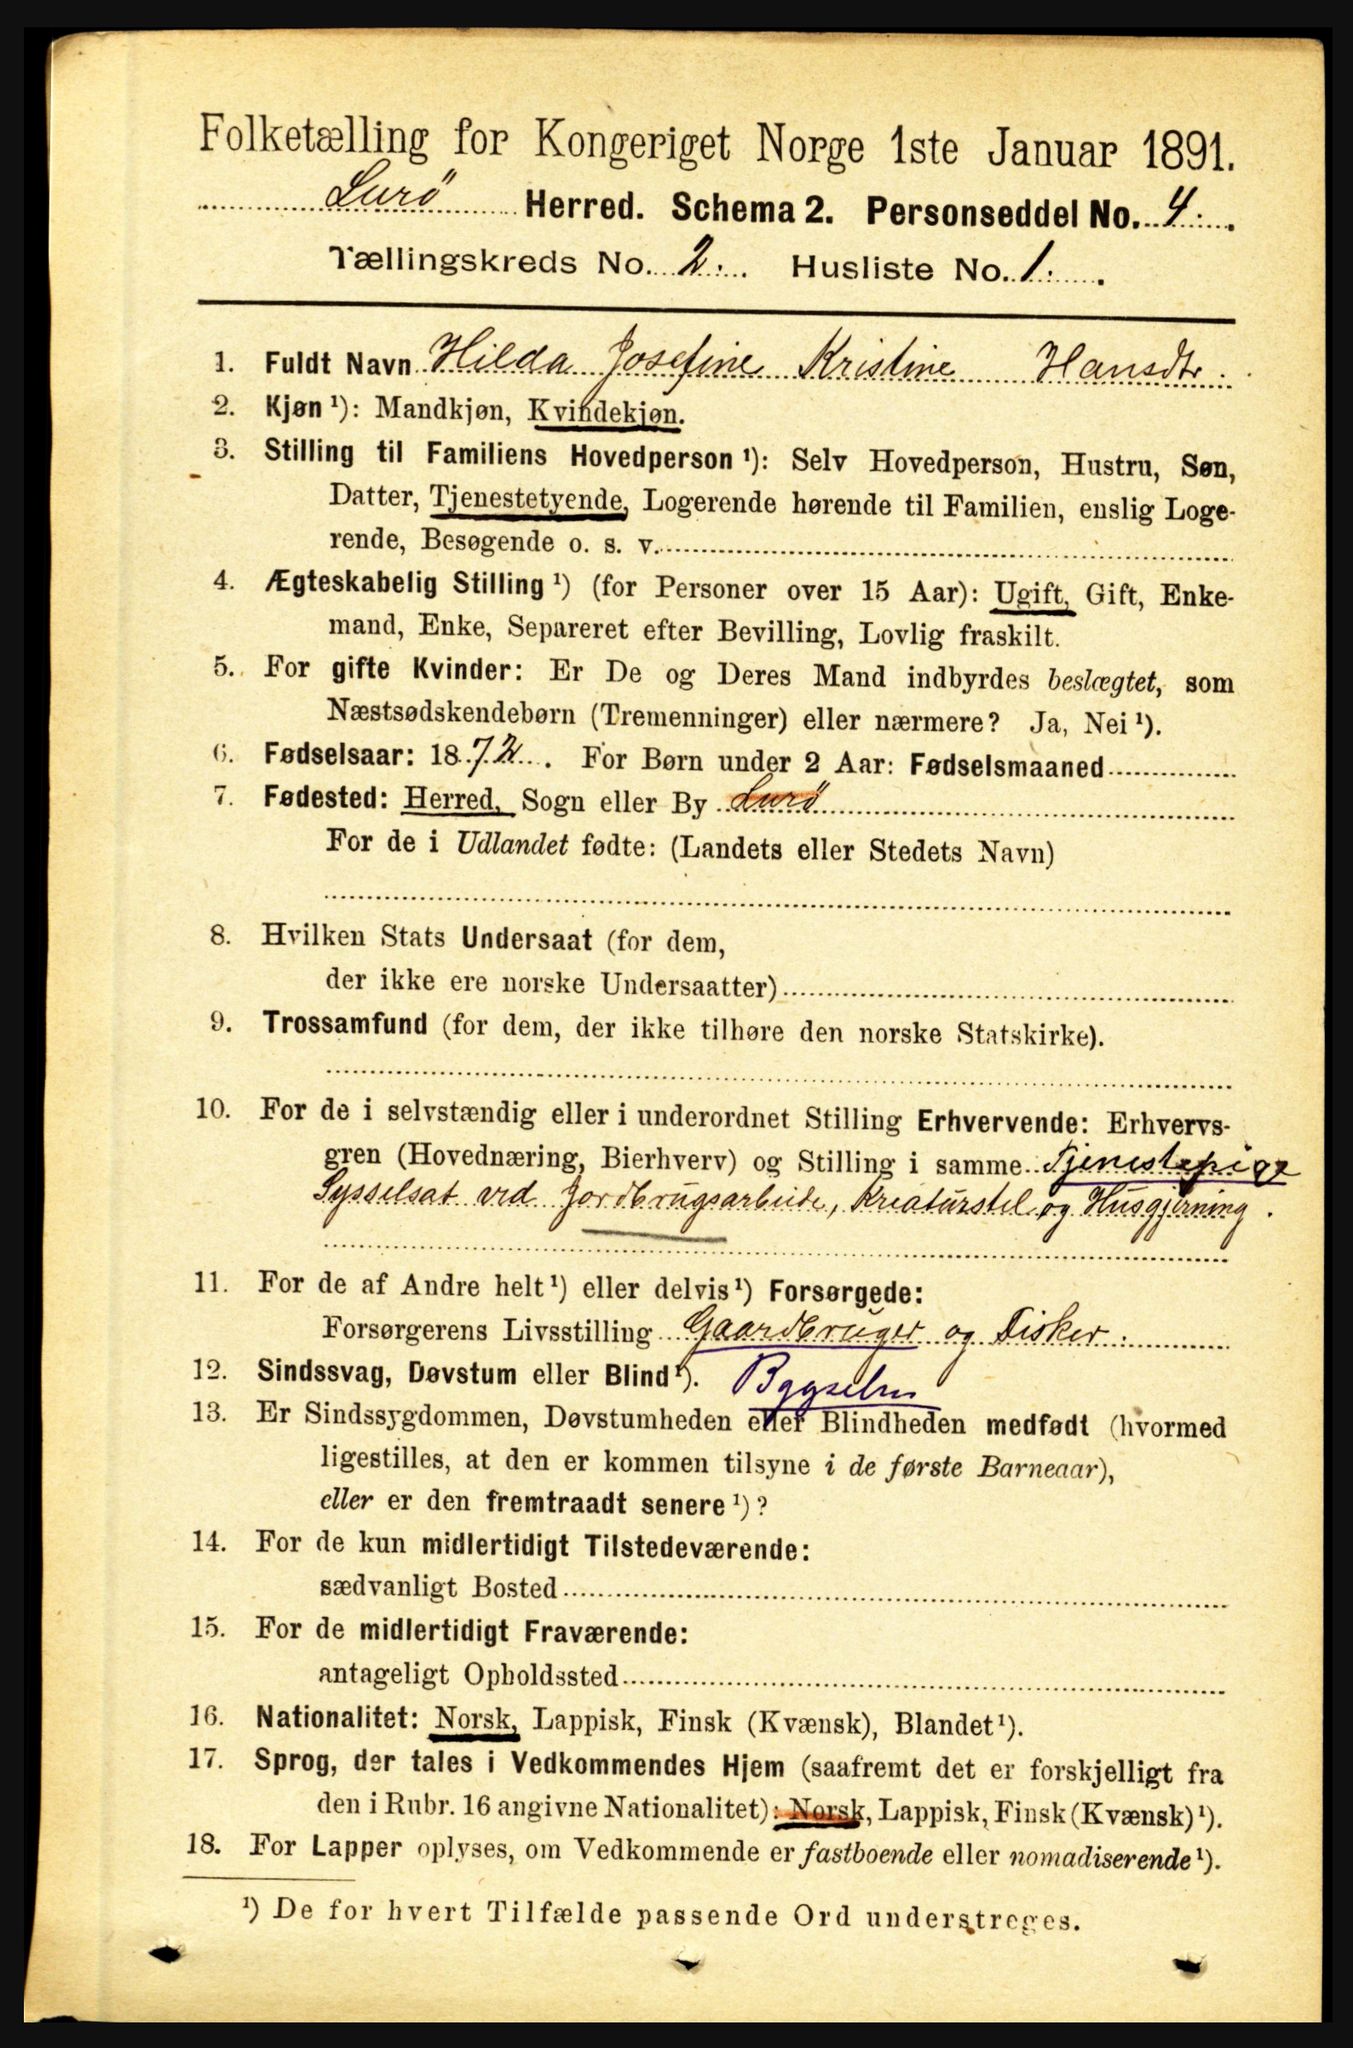 Folketælling for Kongeriget Norge 1ste Januar 1891.
Lurö Herred. Schema 2. Personseddel No. 4.
Tællingskreds No. 2. Husliste No. 1.
1. Fuldt Navn Hilda Josefine Kristine Hansdtr.
2. Kjøn ¹): Mandkjøn, Kvindekjøn.
3. Stilling til Familiens Hovedperson ¹): Selv Hovedperson, Hustru, Søn,
Datter, Tjenestetyende, Logerende hørende til Familien, enslig Loge-
rende, Besøgende o. s. v.
4. Ægteskabelig Stilling ¹) (for Personer over 15 Aar): Ugift, Gift, Enke-
mand, Enke, Separeret efter Bevilling, Lovlig fraskilt.
5. For gifte Kvinder: Er De og Deres Mand indbyrdes beslægtet, som
Næstsødskendebørn (Tremenninger) eller nærmere? Ja, Nei ¹).
6. Fødselsaar: 1872. For Børn under 2 Aar: Fødselsmaaned
7. Fødested: Herred, Sogn eller By Lurö
For de i Udlandet fødte: (Landets eller Stedets Navn)
8. Hvilken Stats Undersaat (for dem,
der ikke ere norske Undersaatter)
9. Trossamfund (for dem, der ikke tilhøre den norske Statskirke).
10. For de i selvstændig eller i underordnet Stilling Erhvervende: Erhvervs-
gren (Hovednæring, Bierhverv) og Stilling i samme Tjenestepige
Sysselsat ved Jordbrugsarbeide, Kreaturstel og Husgjerning.
11. For de af Andre helt ¹) eller delvis ¹) Forsørgede:
Forsørgerens Livsstilling Gaardbruger og Fisker.
12. Sindssvag, Døvstum eller Blind ¹). 
13. Er Sindssygdommen, Døvstumheden eller Blindheden medfødt (hvormed
ligestilles, at den er kommen tilsyne i de første Barneaar),
eller er den fremtraadt senere ¹)?
14. For de kun midlertidigt Tilstedeværende:
sædvanligt Bosted
15. For de midlertidigt Fraværende:
antageligt Opholdssted
16. Nationalitet: Norsk, Lappisk, Finsk (Kvænsk), Blandet ¹).
17. Sprog, der tales i Vedkommendes Hjem (saafremt det er forskjelligt fra
den i Rubr. 16 angivne Nationalitet): Norsk, Lappisk, Finsk (Kvænsk) ¹).
18. For Lapper oplyses, om Vedkommende er fastboende eller nomadiserende ¹).
¹) De for hvert Tilfælde passende Ord understreges.